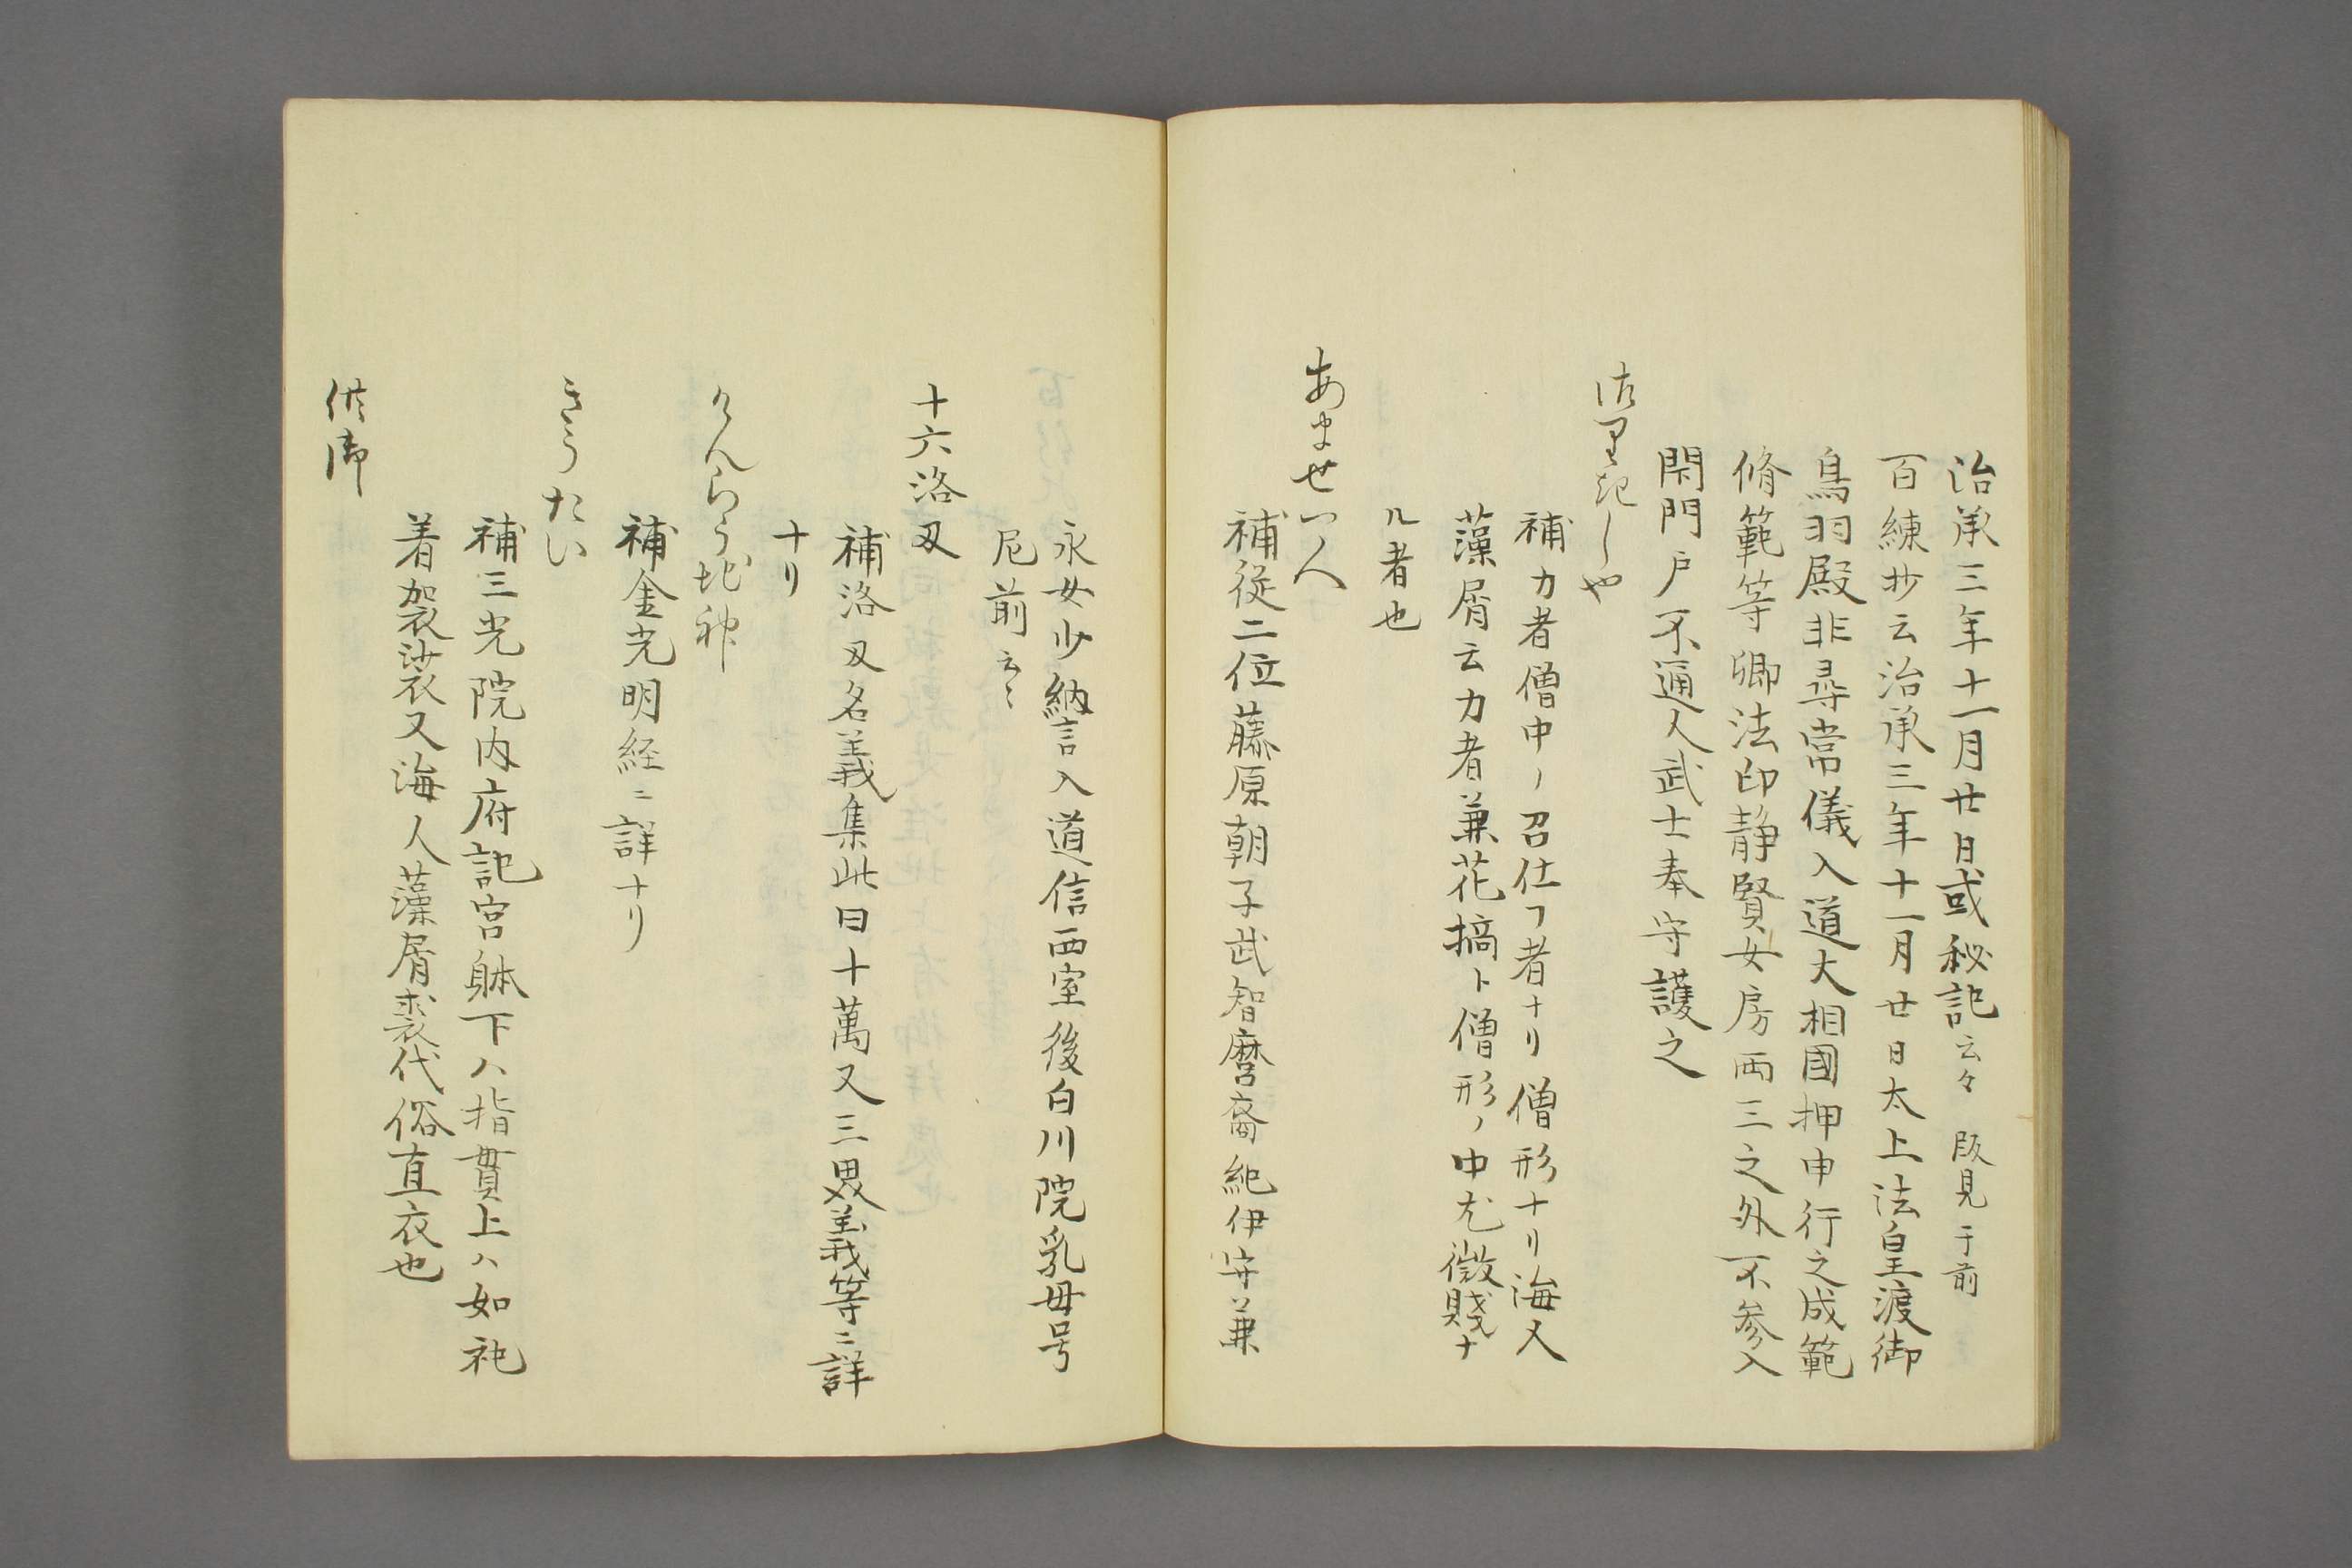 治承三年十一月廿日或秘記云々 段見于前
百練抄云治承三年十一月廿日太上法皇渡御
鳥羽殿非尋常儀入道大相國押申行之成範
脩範等卿法印静賢女房両三之外不参入
閇門戸不通人武士奉守護之
しや
補力者僧中ノ召仕フ者ナリ僧形ナリ海人
藻屑云力者兼花摘ト僧形ノ中尤微賤ナ
ル者也
あませ一人
補従二位藤原朝子武智麿裔紀伊守兼
永女少納言入道信西室後白川院乳母号
尼前云々
十六洛叉
補洛叉名義集此曰十萬又三畧義等ニ詳
ナリ
けんらう地神
補金光明経ニ詳ナリ
きうたい
補三光院内府記宮躰下ハ指貫上ハ如袍
着袈裟又海人藻屑裘代俗直衣也
供御